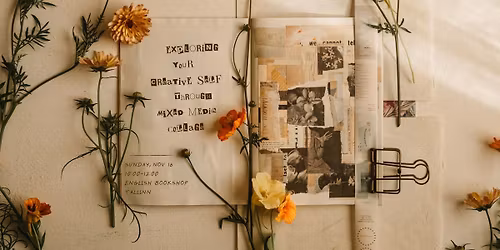 EXPLORING
YOUR
CREATIVE SELF
THROUGH
MIXED MEDIA
COLLAGE
SUNDAY, NOV 16
10:00-13:00
ENGLISH BOOKSHOP
TALLINN
we cannot